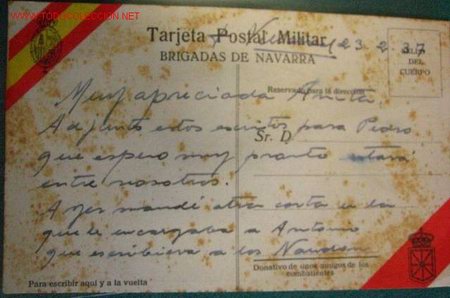 todocoleccion.net
Tarjeta Postal Militar
23 2 37
BRIGADAS DE NAVARRA
SELLO
DEL
CUERPO
Reservado para la dirección
Muy apreciada Anita
Adjunto estos escritos para Pedro
Sr. D.
que espero muy pronto estará
entre nosotros.
Ayer mandé otra carta en la
que le encargaba a Antonio
que escribiera a los
Donativo de unos amigos de los
combatientes
Para escribir aquí y a la vuelta